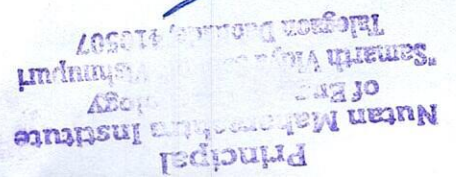 Principal
Nutan Maharashtra Institute
of Eng ology
"Samarth Vidya Vishnupuri
Talegaon Dabhade, 410507